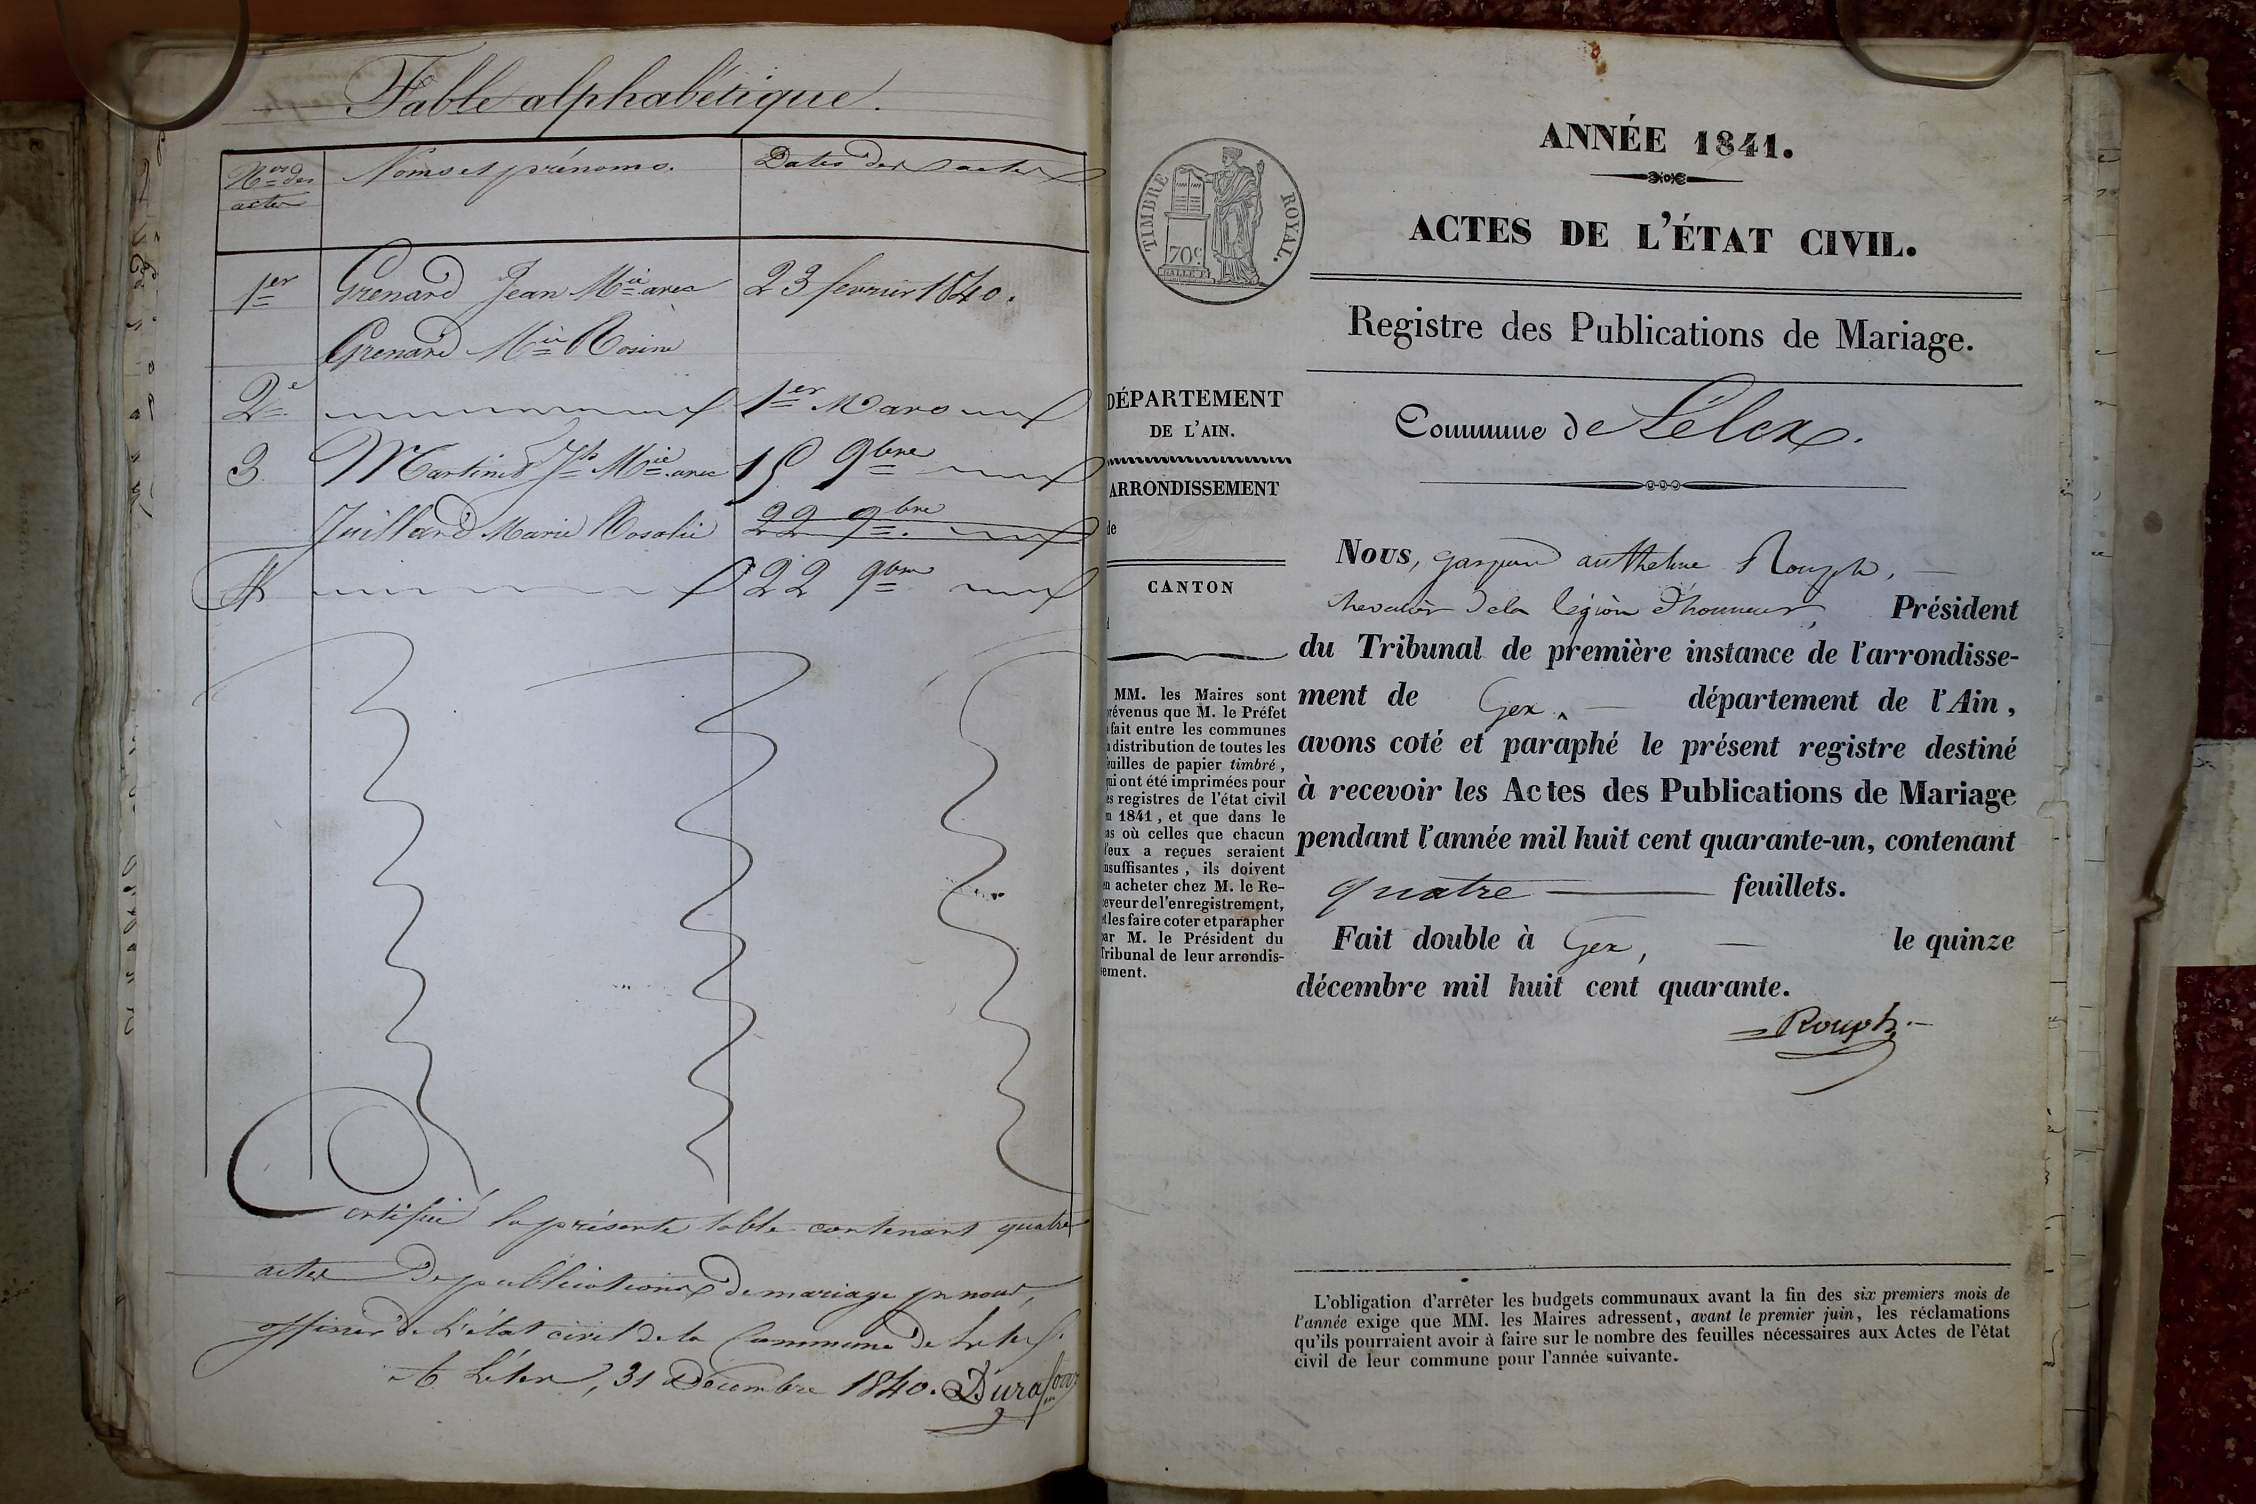 Table alphabétique.
Nos des actes
Noms et prénoms.
Dates des actes
1er Grenard Jean Mie avec 23 février 1840.
Grenard Mie Rosine
2e 1er Mars
3 Martinet Jh Mie avec 15 9bre
Juillard Marie Rosalie 22 9bre
4 22 9bre
Certifié la présente table contenant quatre
actes de publications de mariage par nous,
officier de l'état civil de la Commune de Lélex.
A Lélex, 31 Décembre 1840. Durafour
TIMBRE ROYAL.
70c
ANNÉE 1841.
ACTES DE L'ÉTAT CIVIL.
Registre des Publications de Mariage.
DÉPARTEMENT
DE L'AIN.
ARRONDISSEMENT
de
CANTON
MM. les Maires sont
prévenus que M. le Préfet
fait entre les communes
distribution de toutes les
feuilles de papier timbré,
qui ont été imprimées pour
les registres de l'état civil
1841, et que dans le
cas où celles que chacun
d'eux a reçues seraient
insuffisantes, ils doivent
en acheter chez M. le Re-
ceveur de l'enregistrement,
et les faire coter et parapher
par M. le Président du
Tribunal de leur arrondis-
sement.
Commune de Lélex.
Nous, gaspard anthelme Rouph,
chevalier de la légion d'honneur, Président
du Tribunal de première instance de l'arrondisse-
ment de Gex, département de l'Ain,
avons coté et paraphé le présent registre destiné
à recevoir les Actes des Publications de Mariage
pendant l'année mil huit cent quarante-un, contenant
quatre feuillets.
Fait double à Gex, le quinze
décembre mil huit cent quarante.
Rouph
L'obligation d'arrêter les budgets communaux avant la fin des six premiers mois de
l'année exige que MM. les Maires adressent, avant le premier juin, les réclamations
qu'ils pourraient avoir à faire sur le nombre des feuilles nécessaires aux Actes de l'état
civil de leur commune pour l'année suivante.